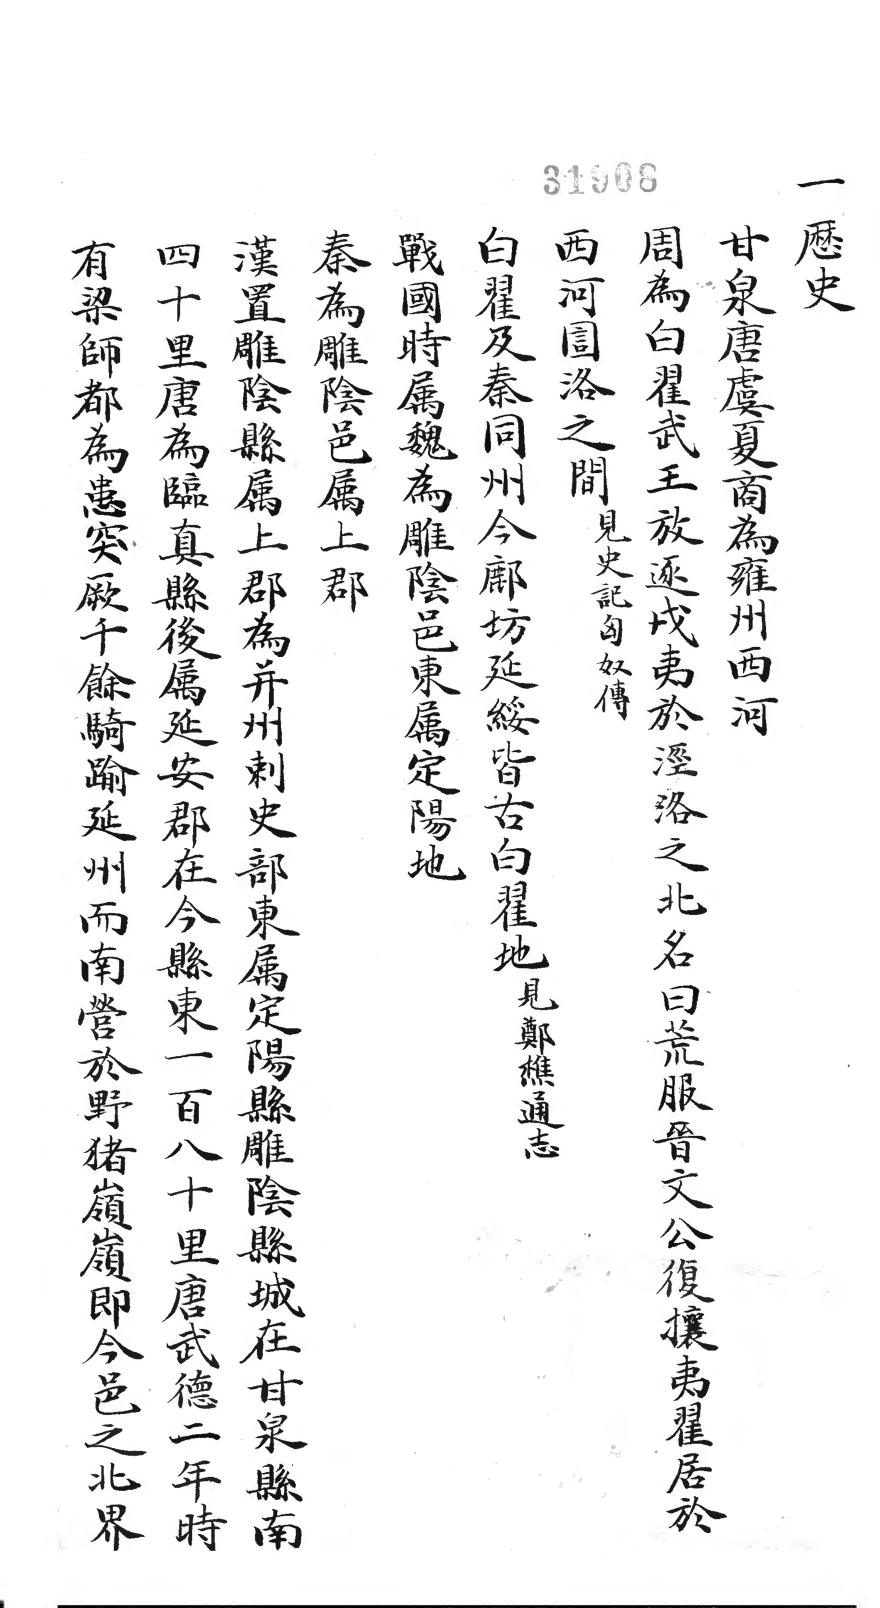 31908
一歷史
甘泉唐虞夏商為雍州西河
周為白翟武王放逐戎夷於涇洛之北名曰荒服晉文公復攘夷翟居於
西河圁洛之間見史記匈奴傳
白翟及秦同州今鄜坊延綏皆古白翟地見鄭樵通志
戰國時属魏為雕陰邑東属定陽地
秦為雕陰邑属上郡
漢置雕陰縣属上郡為并州刺史部東属定陽縣雕陰縣城在甘泉縣南
四十里唐為臨真縣後属延安郡在今縣東一百八十里唐武德二年時
有梁師都為患突厥千餘騎踰延州而南營於野猪嶺嶺即今邑之北界